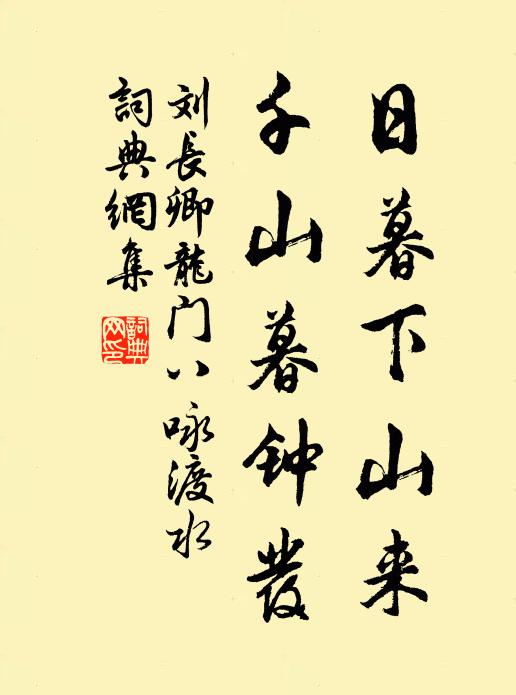 日暮下山来
千山暮钟發
刘長卿龍门八咏渡水
詞典網集
詞典
网印